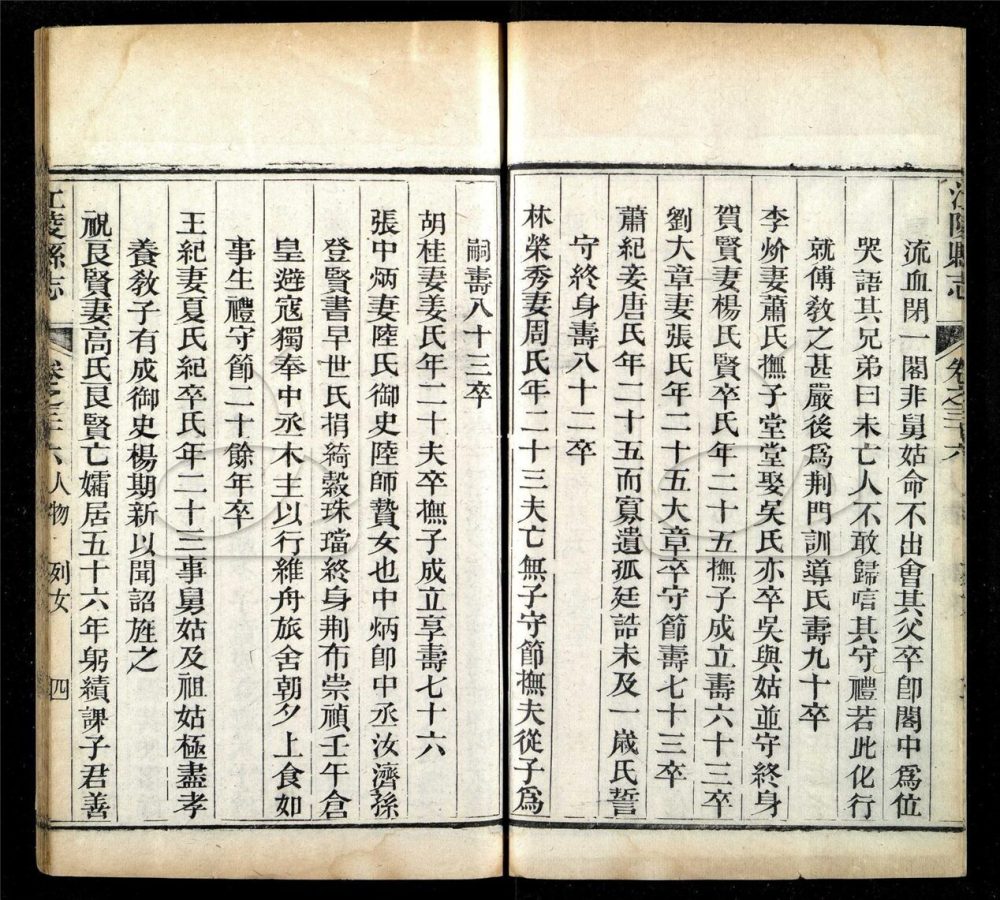 江陵縣志
卷之三十六
流血閉一閣非舅姑命不出會其父卒卽閣中爲位
哭語其兄弟曰未亡人不敢歸唁其守禮若此化行
就傅敎之甚嚴後爲荆門訓導氏壽九十卒
李炌妻蕭氏撫子堂堂娶吳氏亦卒吳與姑並守終身
賀賢妻楊氏賢卒氏年二十五撫子成立壽六十三卒
劉大章妻張氏年二十五大章卒守節壽七十三卒
蕭紀妾唐氏年二十五而寡遺孤廷誥未及一歲氏誓
守終身壽八十二卒
林榮秀妻周氏年二十三夫亡無子守節撫夫從子爲
嗣壽八十三卒
胡桂妻姜氏年二十夫卒撫子成立享壽七十六
張中炳妻陸氏御史陸師贄女也中炳卽中丞汝濟孫
登賢書早世氏捐綺縠珠璫終身荆布崇禎壬午倉
皇避寇獨奉中丞木主以行維舟旅舍朝夕上食如
事生禮守節二十餘年卒
王紀妻夏氏紀卒氏年二十三事舅姑及祖姑極盡孝
養敎子有成御史楊期新以聞詔旌之
祝良賢妻高氏良賢亡孀居五十六年躬績課子君善
江陵縣志
卷之三十六 人物 列女 四